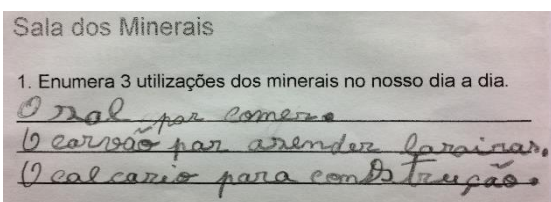 Sala dos Minerais
1. Enumera 3 utilizações dos minerais no nosso dia a dia.
O sal par comer.
O carvão par asender larairas.
O calcario para construção.